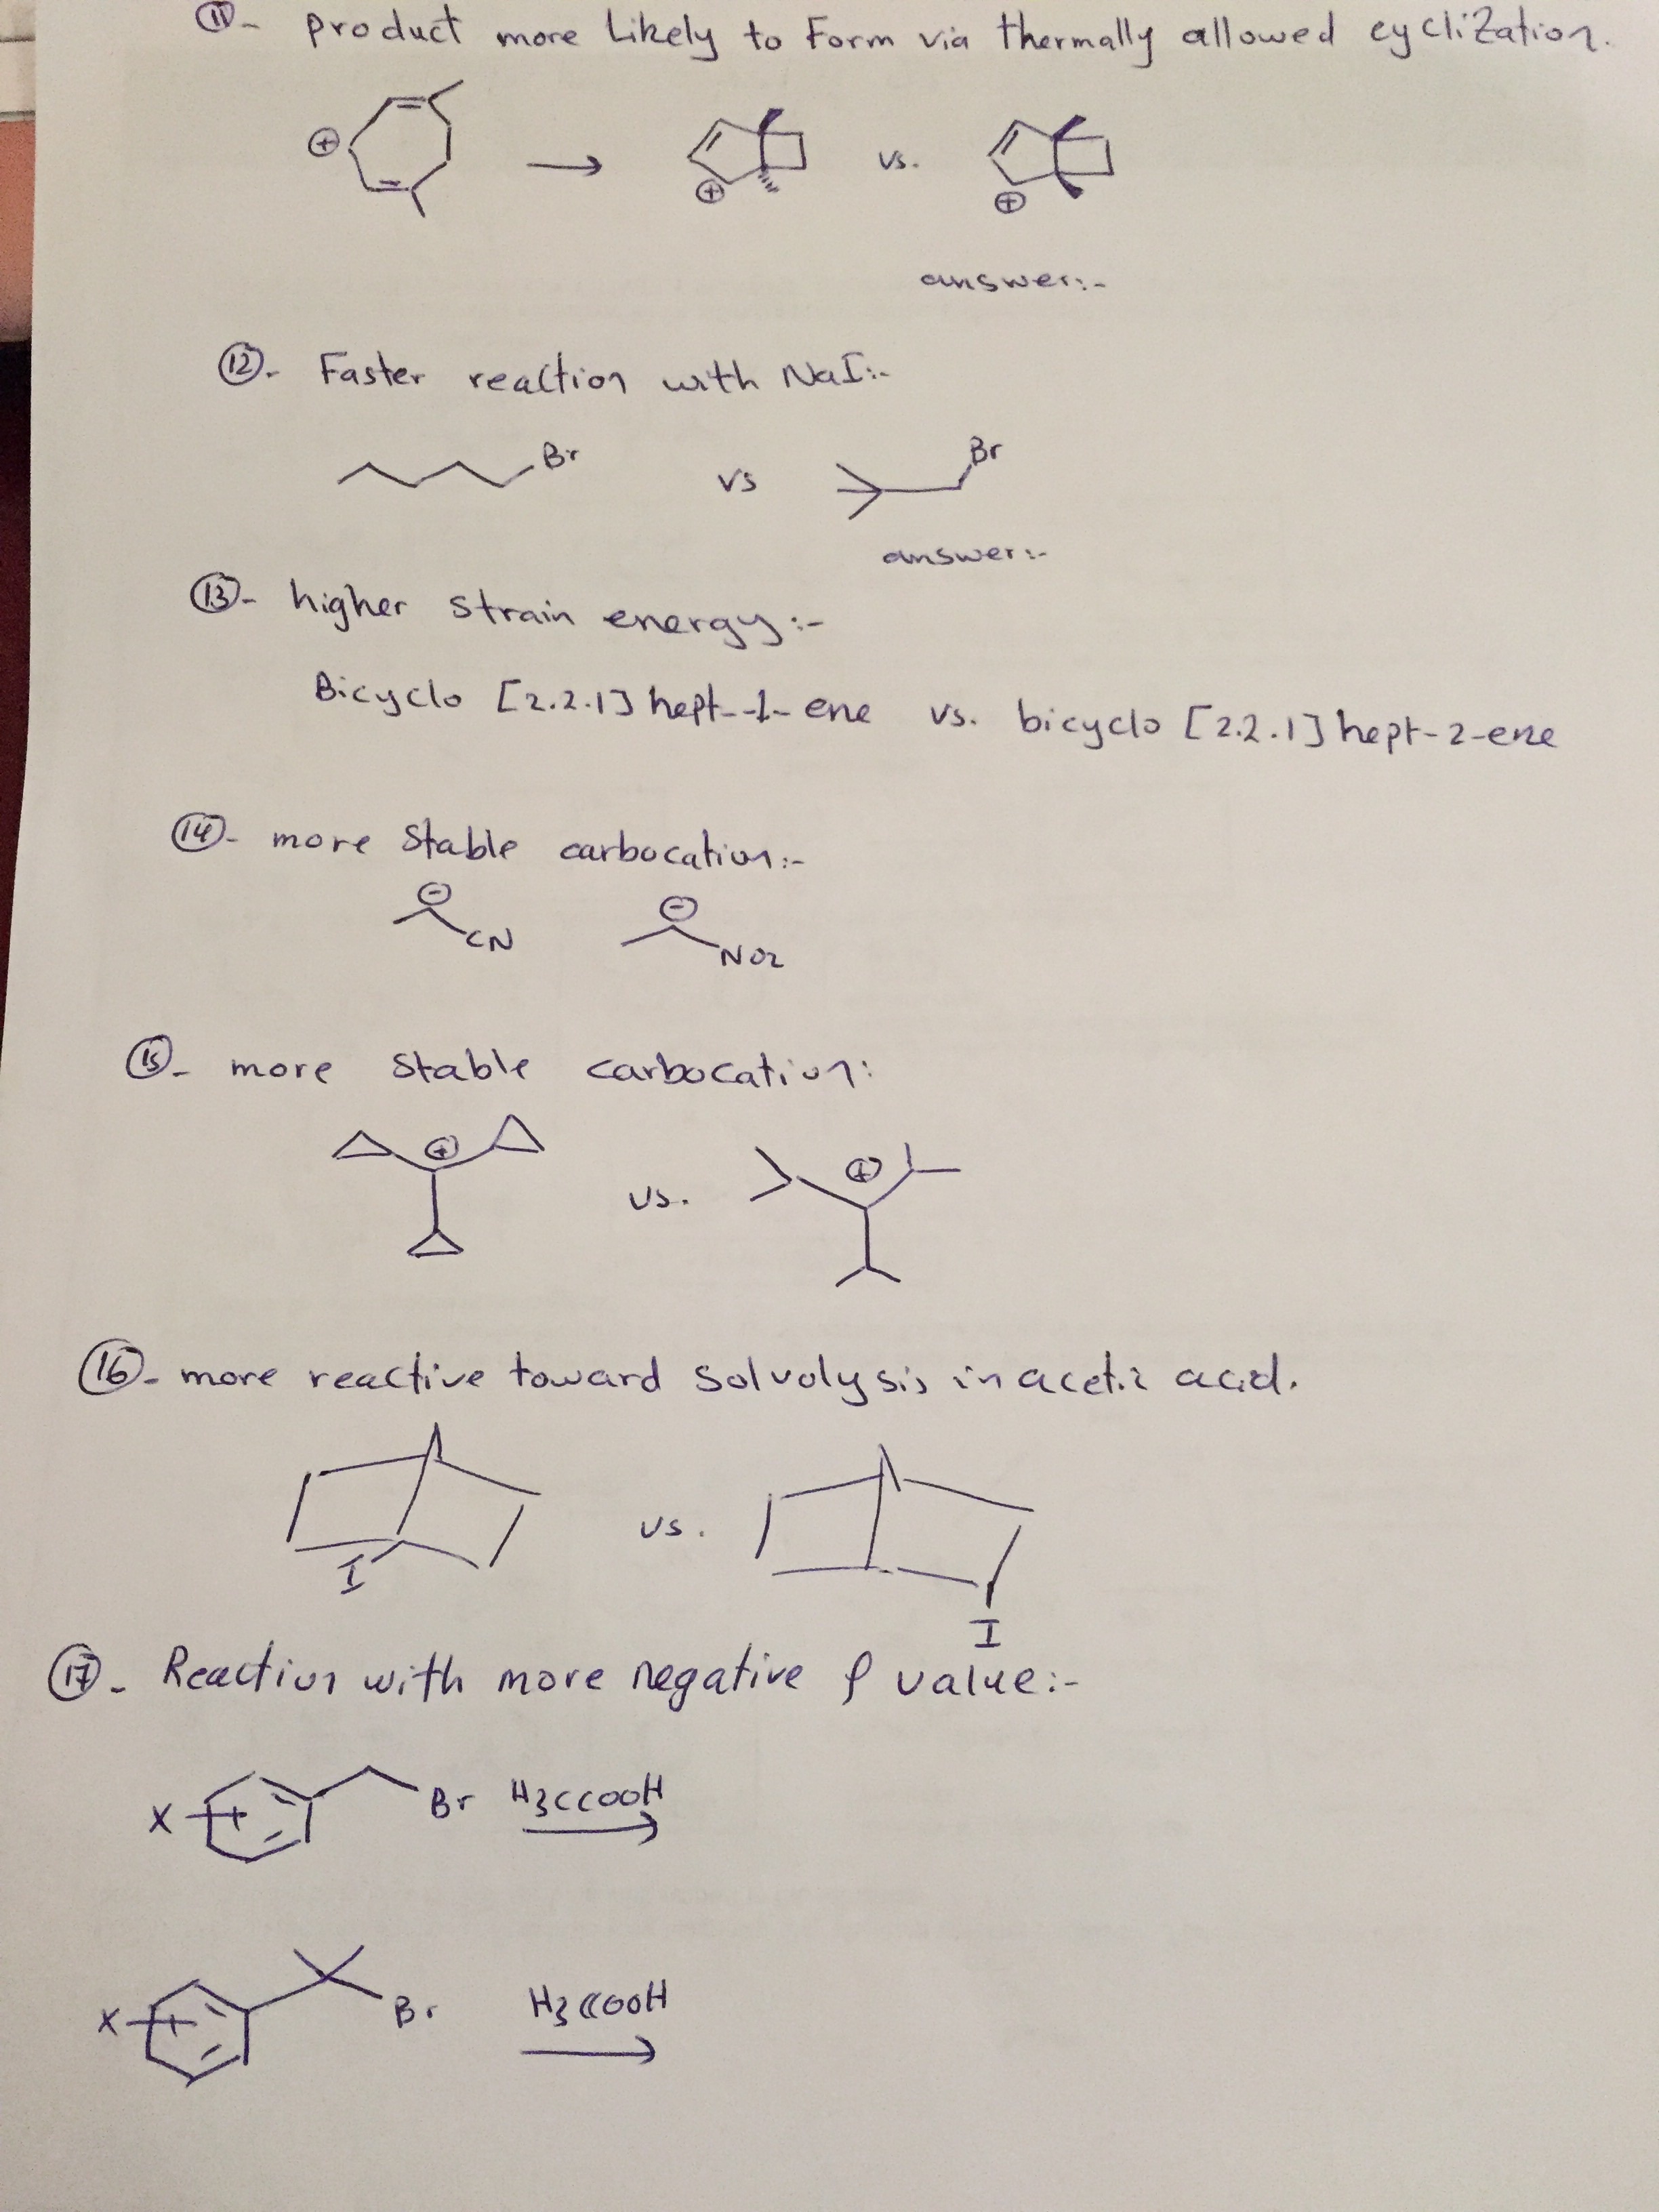 ⑪- product more Likely to Form via thermally allowed cyclization.
⊕ → ⊕ vs. ⊕
answer:-
⑫- Faster reaction with NaI:-
Br vs Br
answer:-
⑬- higher strain energy:-
Bicyclo [2.2.1] hept--1-ene vs. bicyclo [2.2.1] hept-2-ene
⑭- more stable carbocation:-
⊖ CN ⊖ NO2
⑮- more stable carbocation:
⊕ vs. ⊕
⑯- more reactive toward solvolysis in acetic acid.
I vs. I
⑰- Reaction with more negative ρ value:-
X Br H3CCOOH
X Br H3CCOOH